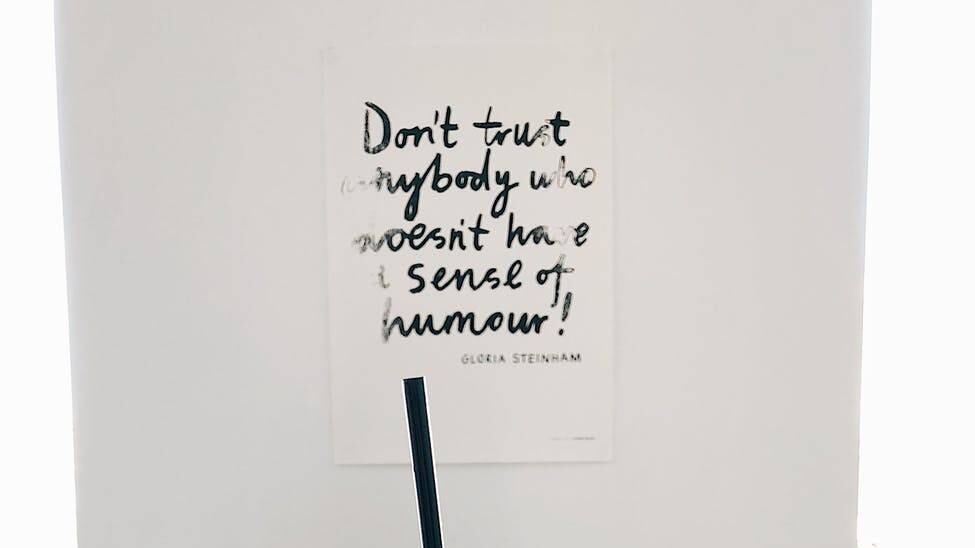 Don't trust
anybody who
doesn't have
a sense of
humour!
GLORIA STEINHAM